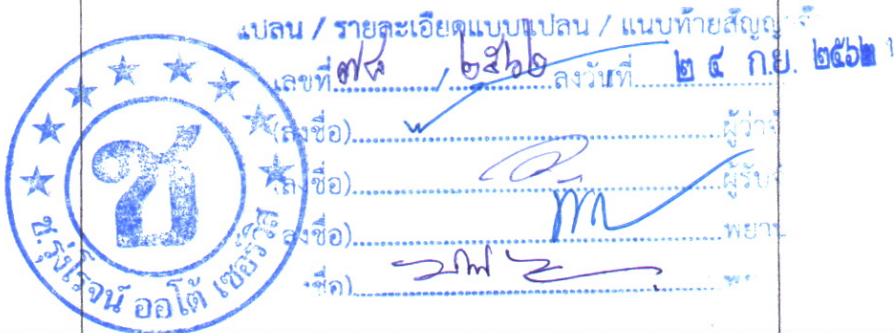 แปลน / รายละเอียดแบบแปลน / แนบท้ายสัญญา
เลขที่ ๗๘ / ๒๕๖๒ ลงวันที่ ๒๔ ก.ย. ๒๕๖๒
(ลงชื่อ) ผู้ว่าจ้
(ลงชื่อ) ผู้รับจ้
ลงชื่อ) พยาน
ชื่อ)
ช
ช.รุ่งโรจน์ ออโต้ เซอร์วิส